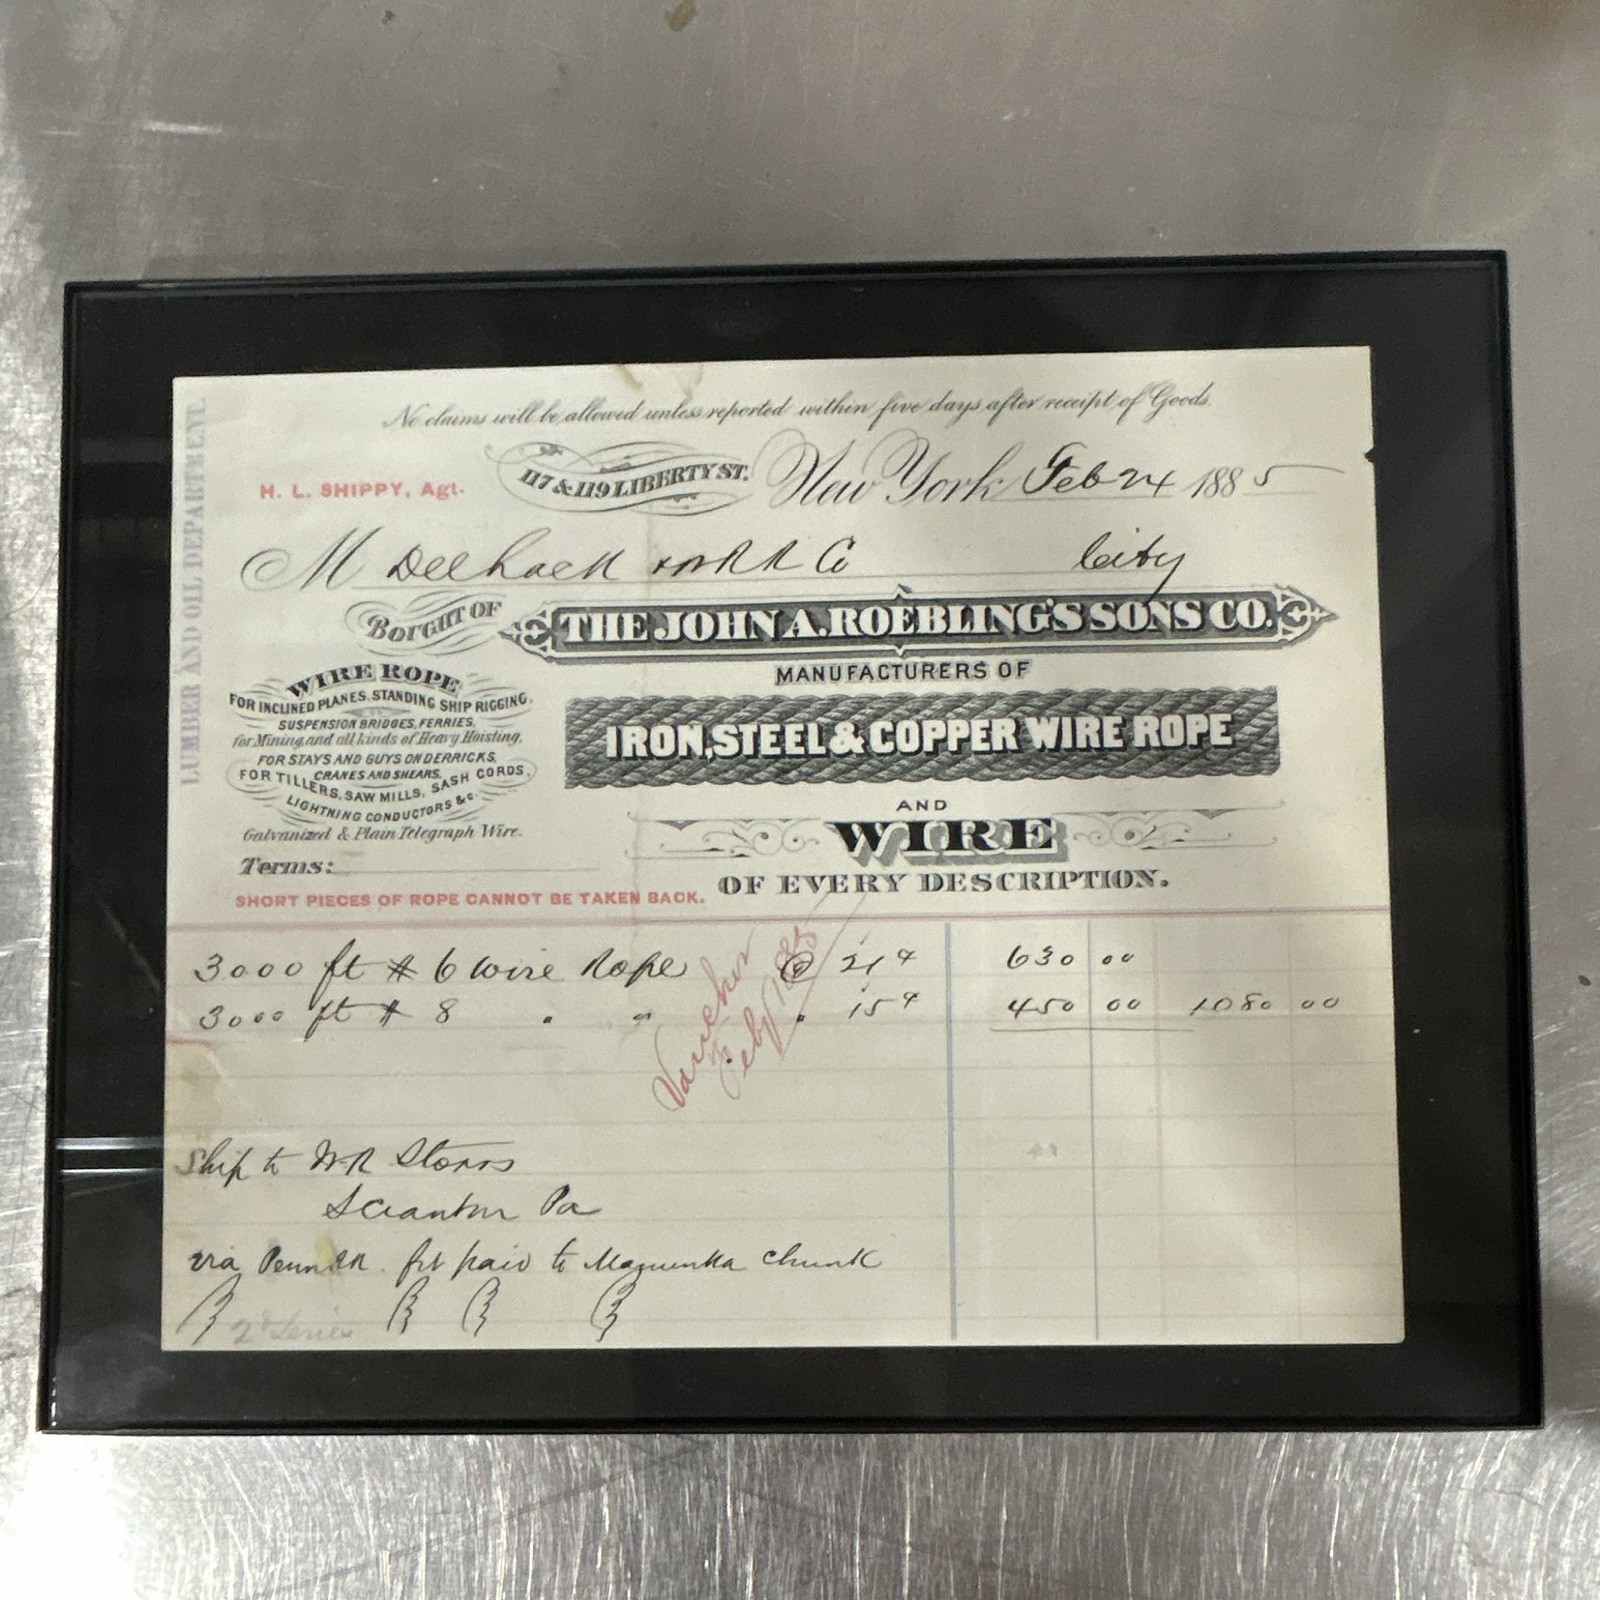 No claims will be allowed unless reported within five days after receipt of Goods.
LUMBER AND OIL DEPARTMENT.
H. L. SHIPPY, Agt.
117 & 119 LIBERTY ST.
New York Feb 24 1885
M Del Lack & W R R Co City
BOUGHT OF
THE JOHN A. ROEBLING'S SONS CO.
MANUFACTURERS OF
IRON, STEEL & COPPER WIRE ROPE
AND
WIRE
OF EVERY DESCRIPTION.
WIRE ROPE
FOR INCLINED PLANES, STANDING SHIP RIGGING,
SUSPENSION BRIDGES, FERRIES,
for Mining, and all kinds of Heavy Hoisting,
FOR STAYS AND GUYS ON DERRICKS,
CRANES AND SHEARS,
FOR TILLERS, SAW MILLS, SASH CORDS,
LIGHTNING CONDUCTORS &c.
Galvanized & Plain Telegraph Wire.
Terms:
SHORT PIECES OF ROPE CANNOT BE TAKEN BACK.
3000 ft # 6 Wire Rope @ 21¢ 630 00
3000 ft # 8 " " " 15¢ 450 00 1080 00
Voucher
Feby 1885
Ship to W R Storrs
Scranton Pa
via Penn RR frt paid to Manunka Chunk
2d Series